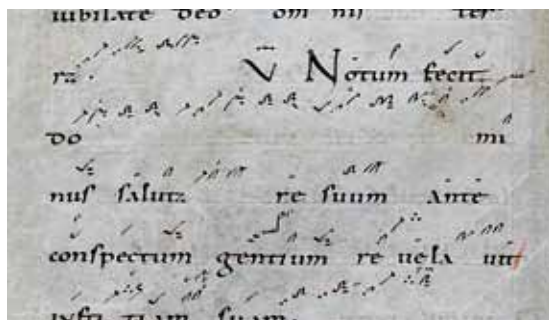 iubilate deo om nis ter
ra . V Notum fecit
do mi
nus salutare suum ante
conspectum gentium re vela vit
iusti tiam suam.